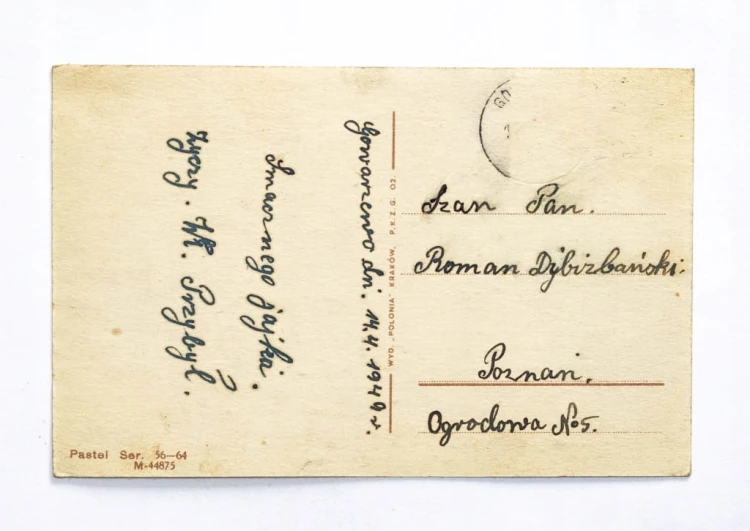 Gowarzewo dn. 14.4.1949 r.
Smacznego jajka.
Życzy. Wł. Przybył.
WYD. „POLONIA" KRAKÓW, P.K.Z.G. OZ.
Szan Pan.
Roman Dybizbański.
Poznań.
Ogrodowa No 5.
Pastel Ser. 56—64
M-44875